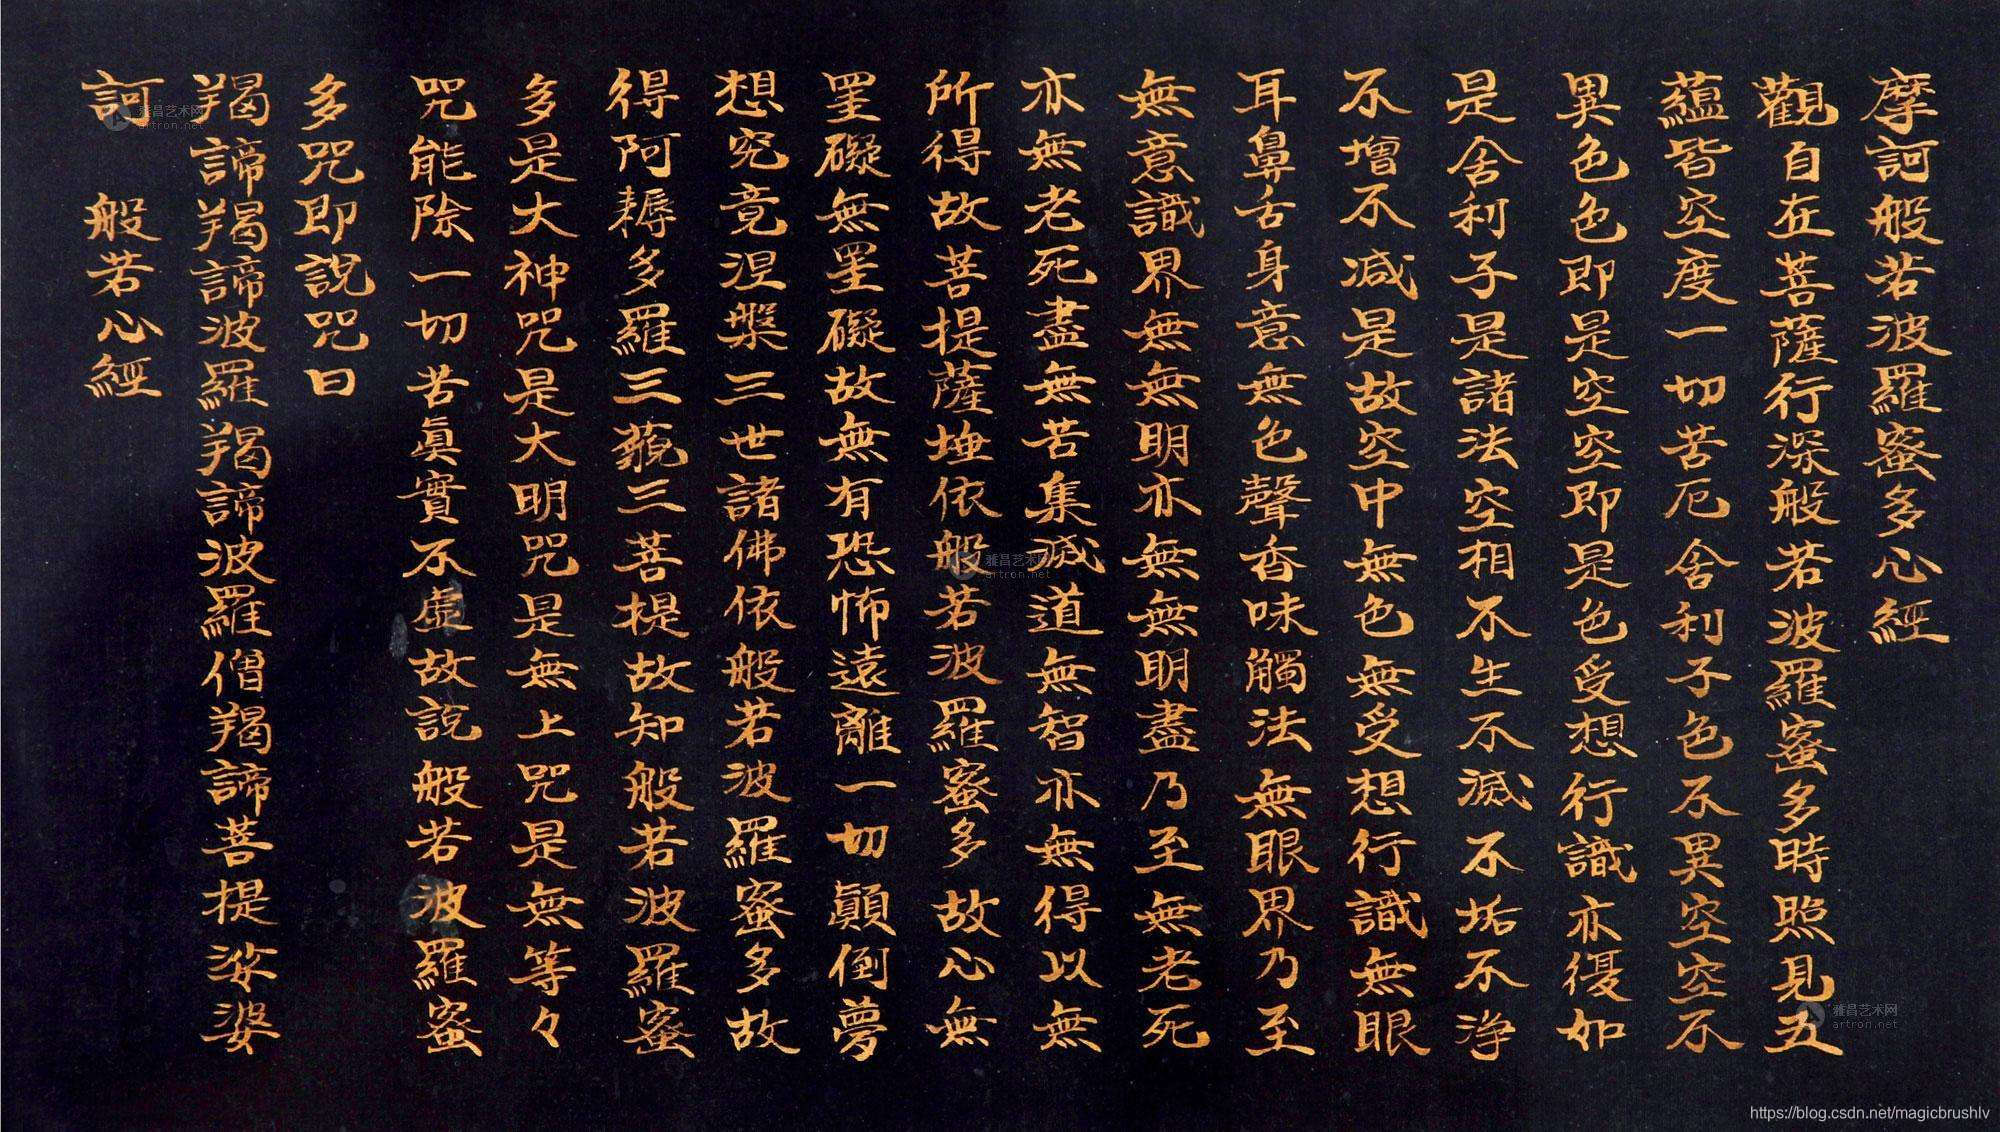 摩訶般若波羅蜜多心經
觀自在菩薩行深般若波羅蜜多時照見五
蘊皆空度一切苦厄舍利子色不異空空不
異色色即是空空即是色受想行識亦復如
是舍利子是諸法空相不生不滅不垢不淨
不增不減是故空中無色無受想行識無眼
耳鼻舌身意無色聲香味觸法無眼界乃至
無意識界無無明亦無無明盡乃至無老死
亦無老死盡無苦集滅道無智亦無得以無
所得故菩提薩埵依般若波羅蜜多故心無
罣礙無罣礙故無有恐怖遠離一切顛倒夢
想究竟涅槃三世諸佛依般若波羅蜜多故
得阿耨多羅三藐三菩提故知般若波羅蜜
多是大神咒是大明咒是無上咒是無等々
咒能除一切苦真實不虛故說般若波羅蜜
多咒即說咒曰
羯諦羯諦波羅羯諦波羅僧羯諦菩提娑婆
訶　般若心經
雅昌艺术网
artron.net
雅昌艺术网
artron.net
雅昌艺术网
artron.net
https://blog.csdn.net/magicbrushlv